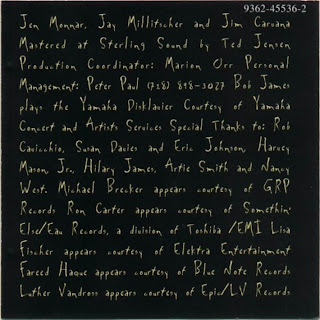 9362-45536-2
Jen Monnar, Jay Millitscher and Jim Caruana
Mastered at Sterling Sound by Ted Jensen
Production Coordinator: Marion Orr Personal
Management: Peter Paul (718) 898-3027 Bob James
plays the Yamaha Disklavier Courtesy of Yamaha
Concert and Artists Services Special Thanks to: Rob
Cavicchio, Susan Davies and Eric Johnson, Harvey
Mason, Jr., Hilary James, Artie Smith and Nancy
West. Michael Brecker appears courtesy of GRP
Records Ron Carter appears courtesy of Somethin'
Else/Eau Records, a division of Toshiba /EMI Lisa
Fischer appears courtesy of Elektra Entertainment
Fareed Haque appears courtesy of Blue Note Records
Luther Vandross appears courtesy of Epic/LV Records